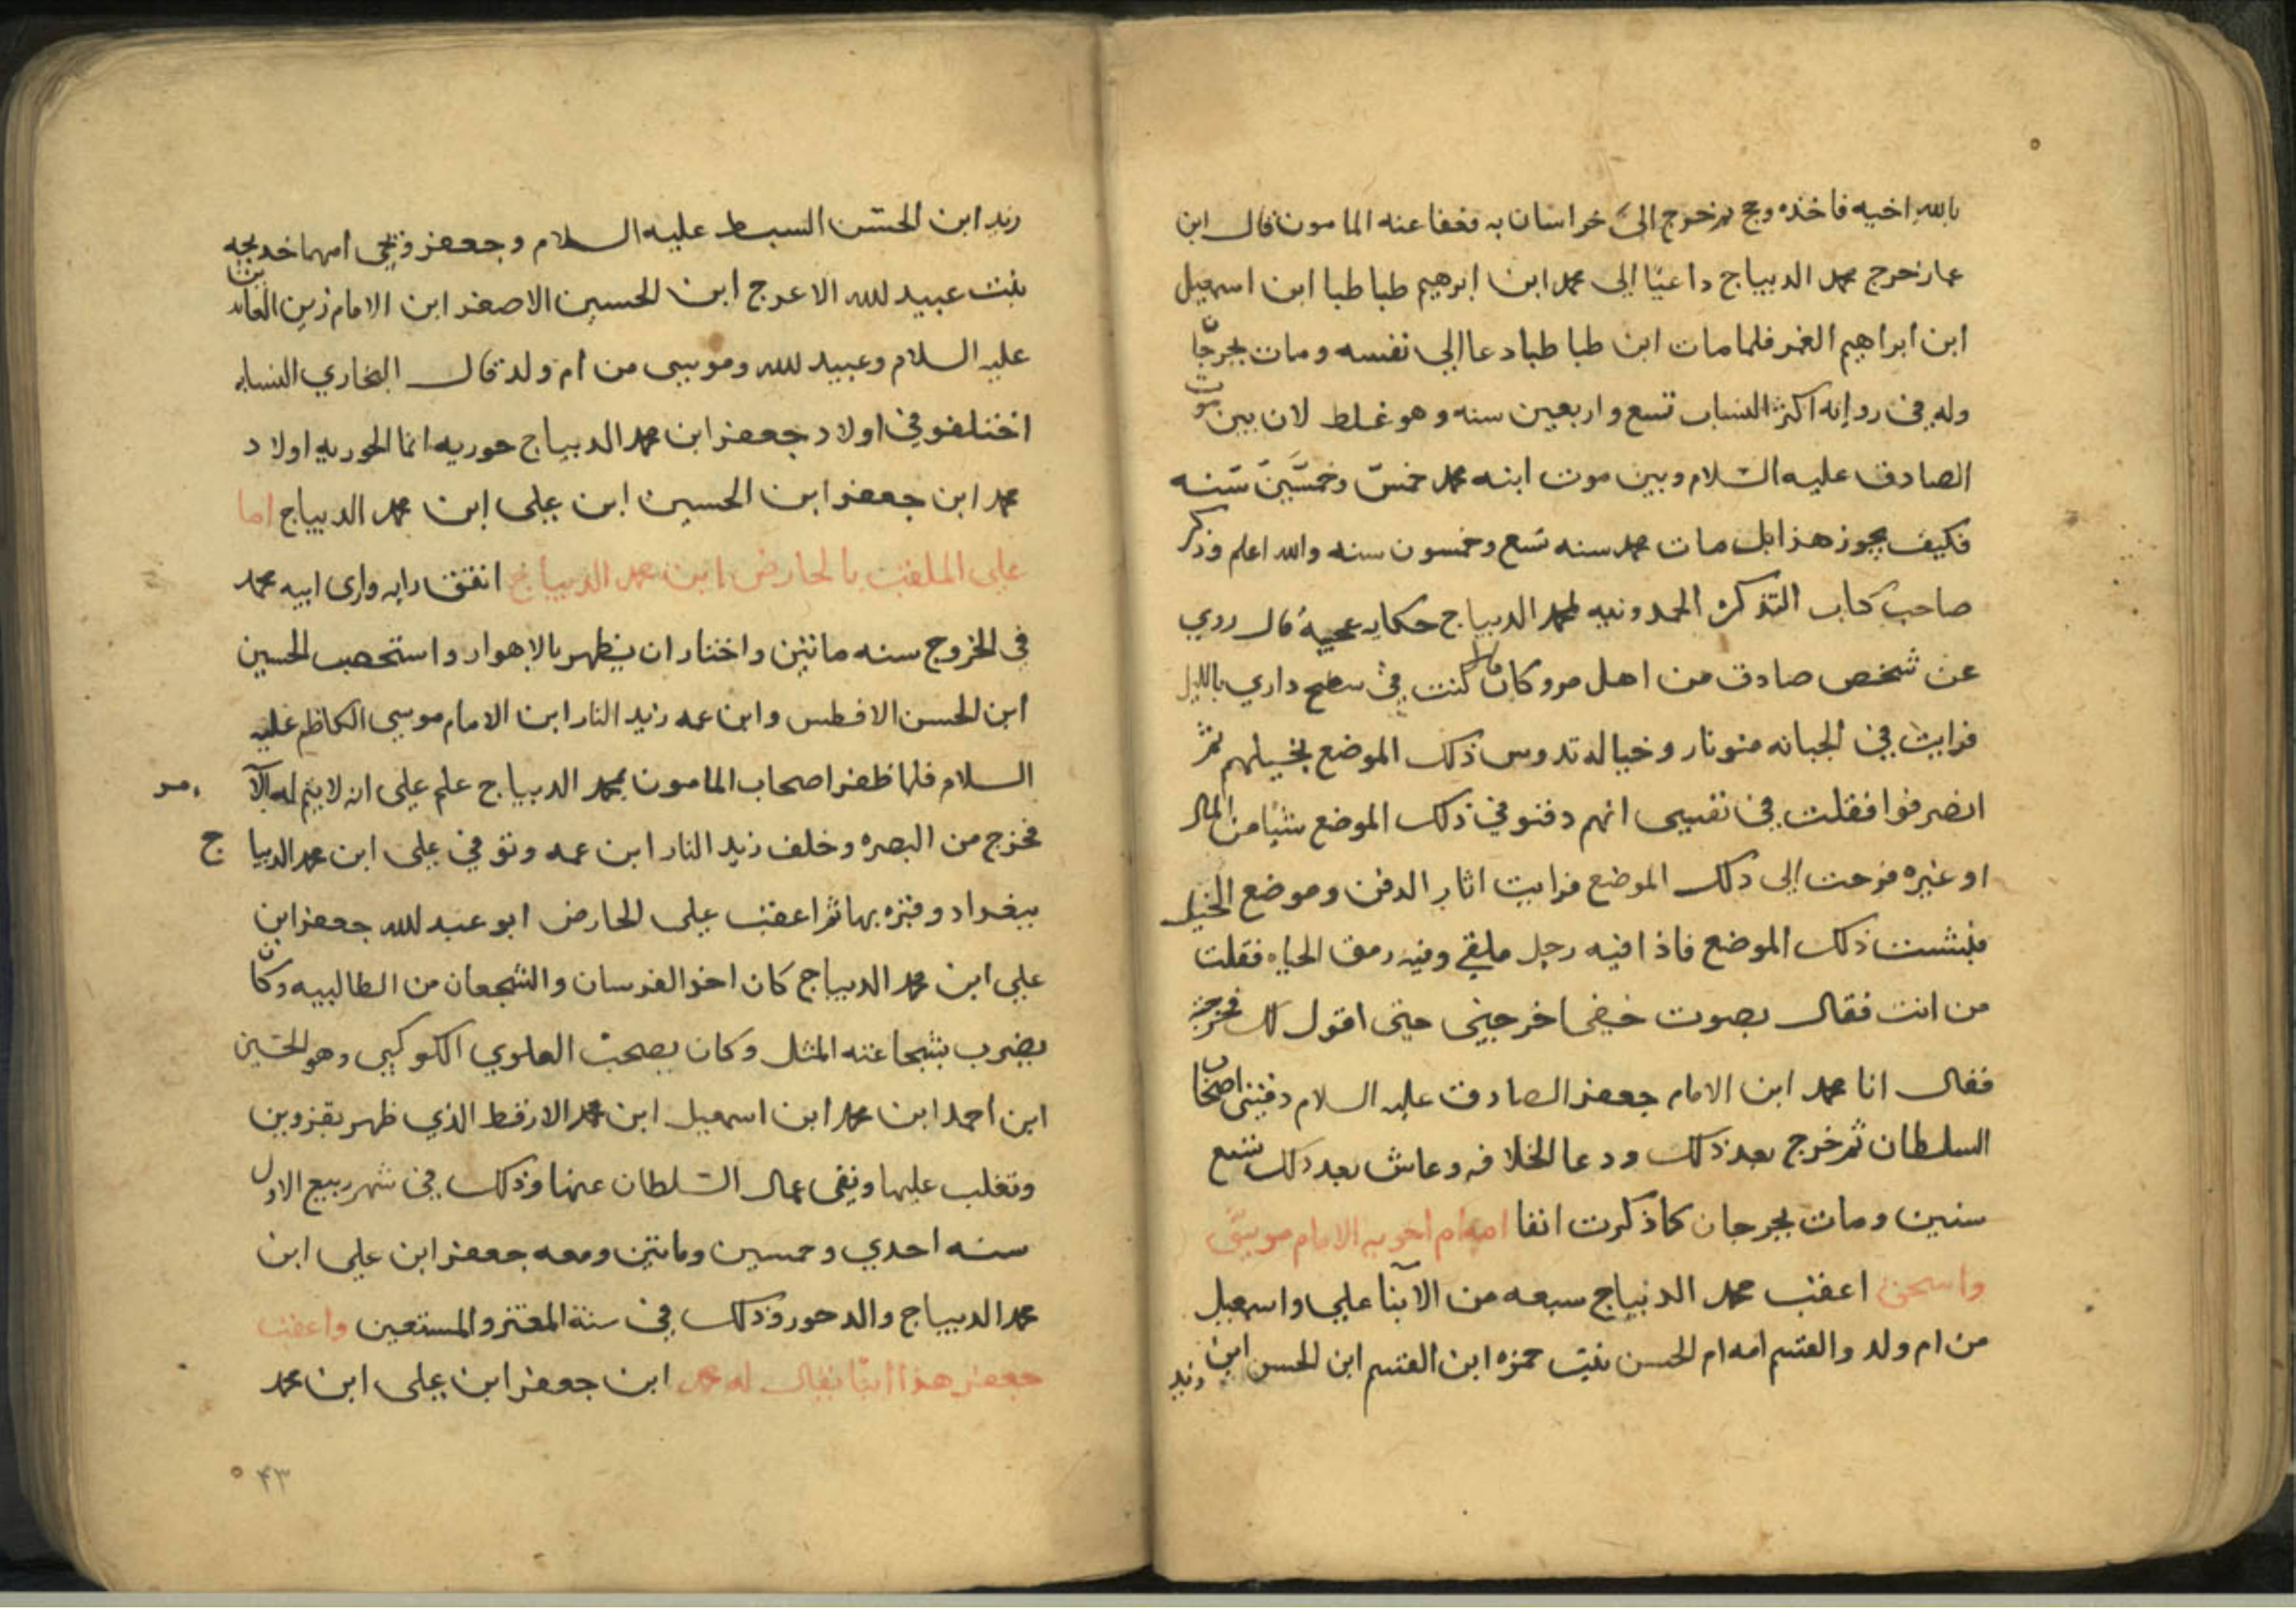 بالله اخيه فاخذه وحج ثم خرج الى خراسان به فعفا عنه المامون قال ابن
عمار خرج محمد الديباج داعيا الى محمد ابن ابرهيم طباطبا ابن اسمعيل
ابن ابراهيم الغمر فلما مات ابن طباطبا دعا الى نفسه ومات بجرجان
وله في روايه اكثر النساب تسع واربعين سنه وهو غلط لان بين موت
الصادق عليه السلام وبين موت ابنه محمد خمس وخمسين سنه
فكيف يجوز هذا بل مات محمد سنه تسع وخمسون سنه والله اعلم وذكر
صاحب كتاب التذكره الحمدونيه لمحمد الديباج حكايه عجيبة قال روي
عن شخص صادق من اهل مرو كان قال كنت في سطح داري بالليل
فرايت في الجبانه ضو نار وخياله تدوس ذلك الموضع بخيلهم ثم
انصرفوا فقلت في نفسي انهم دفنو في ذلك الموضع شيا من المال
او غيره فرحت الى ذلك الموضع فرايت اثار الدفن وموضع الخيل
فنبشت ذلك الموضع فاذا فيه رجل ملقي وفيه رمق الحياه فقلت
من انت فقال بصوت خفي اخرجيني حتى اقول لك فخرجته
فقال انا محمد ابن الامام جعفر الصادق عليه السلام دفنني اصحاب
السلطان ثم خرج بعد ذلك ودعا للخلافه وعاش بعد ذلك تسع
سنين ومات بجرجان كما ذكرت انفا امه ام اخويه الامام موسى
واسحق اعقب محمد الديباج سبعه من الابنا علي واسمعيل
من ام ولد والقسم امه ام الحسن بنت حمزه ابن القسم ابن الحسن ابن
زيد
زيد ابن الحسن السبط عليه السلام وجعفر ويحيى امهما خديجه
بنت عبيد لله الاعرج ابن الحسين الاصغر ابن الامام زين العابدين
عليه السلام وعبيد لله وموسى من ام ولد قال البخاري النسابه
اختلفو في اولاد جعفر ابن محمد الديباج حوريه انما الحوريه اولاد
محمد ابن جعفر ابن الحسين ابن علي ابن محمد الديباج اما
علي الملقب بالحارض ابن محمد الديباج اتفق رايه وراى ابيه محمد
في الخروج سنه ماتين واختار ان يظهر بالاهواز واستحصب الحسين
ابن الحسن الافطس وابن عمه زيد النار ابن الامام موسى الكاظم عليه
السلام فلما ظفر اصحاب المامون بمحمد الديباج علم علي انه لا يتم له الامر
فخرج من البصره وخلف زيد النار ابن عمه وتوفي علي ابن محمد الديباج
ببغداد وقبره بها ثم اعقب علي الحارض ابو عبد لله جعفر ابن
علي ابن محمد الديباج كان احد الفرسان والشجعان من الطالبيه وكان
يضرب بشجاعته المثل وكان يصحب العلوي الكوكبي وهو الحسين
ابن احمد ابن محمد ابن اسمعيل ابن محمد الارقط الذي ظهر بقزوين
وتغلب عليها ونفى عمال السلطان عنها وذلك في شهر ربيع الاول
سنه احدي وخمسين وماتين ومعه جعفر ابن علي ابن
محمد الديباج والد حور وذلك في المعتز والمستعين واعقب
جعفر هذا ابنا يقال له محمد ابن جعفر ابن علي ابن محمد
۴۳